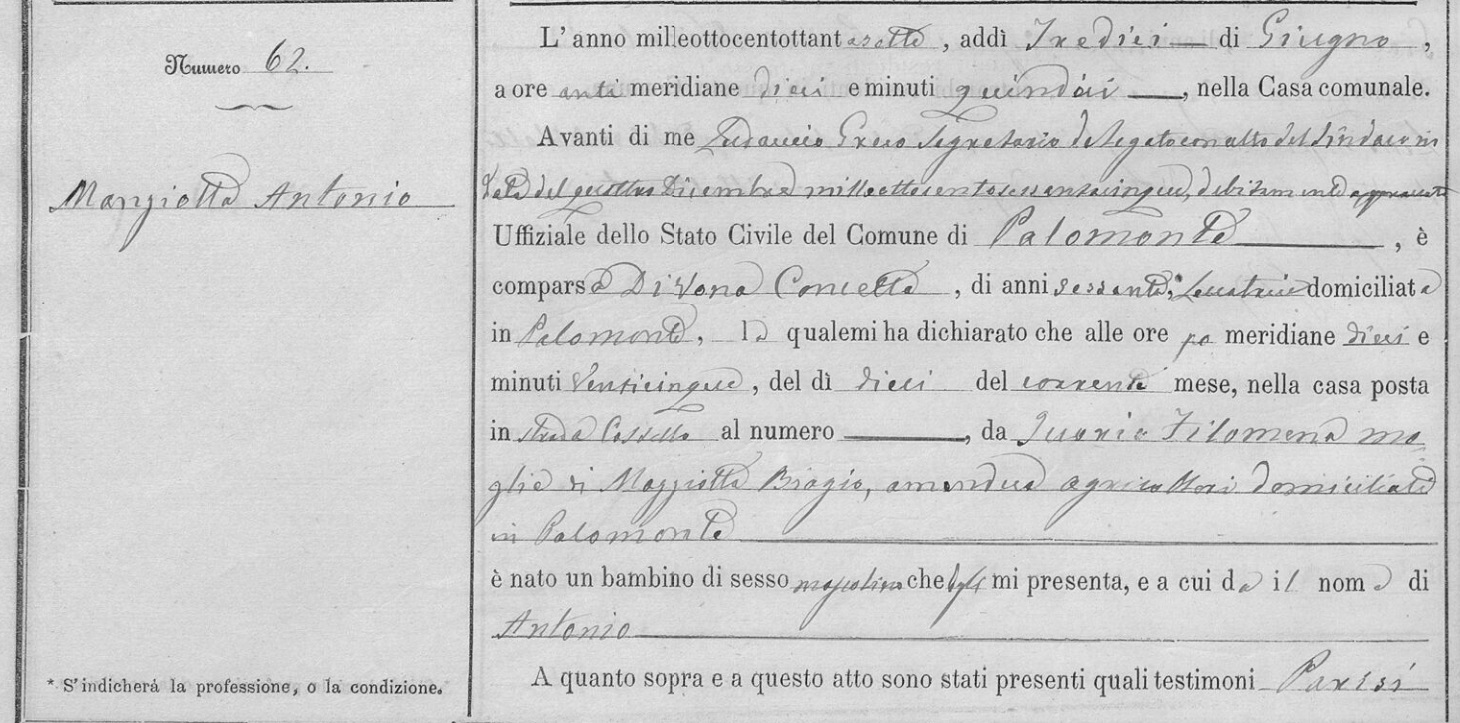 Numero 62.
Manziotta Antonio
* S'indicherà la professione, o la condizione.
L'anno milleottocentottantasette, addì Tredici di Giugno,
a ore anti meridiane dieci e minuti quindici, nella Casa comunale.
Avanti di me Greco Segretario delegato con atto del Sindaco in
data del quattro Dicembre milleottocentosessantacinque, debitamente approvato
Uffiziale dello Stato Civile del Comune di Palomonte, è
comparsa Di Vona Concetta, di anni sessanta, Levatrice domiciliata
in Palomonte, la quale mi ha dichiarato che alle ore po meridiane dieci e
minuti Venticinque, del dì dieci del corrente mese, nella casa posta
in strada al numero, da Filomena mo
glie di Mazziotta Biagio, amendue agricoltori domiciliati
in Palomonte
è nato un bambino di sesso mascolino che mi presenta, e a cui da il nome di
Antonio
A quanto sopra e a questo atto sono stati presenti quali testimoni Parisi